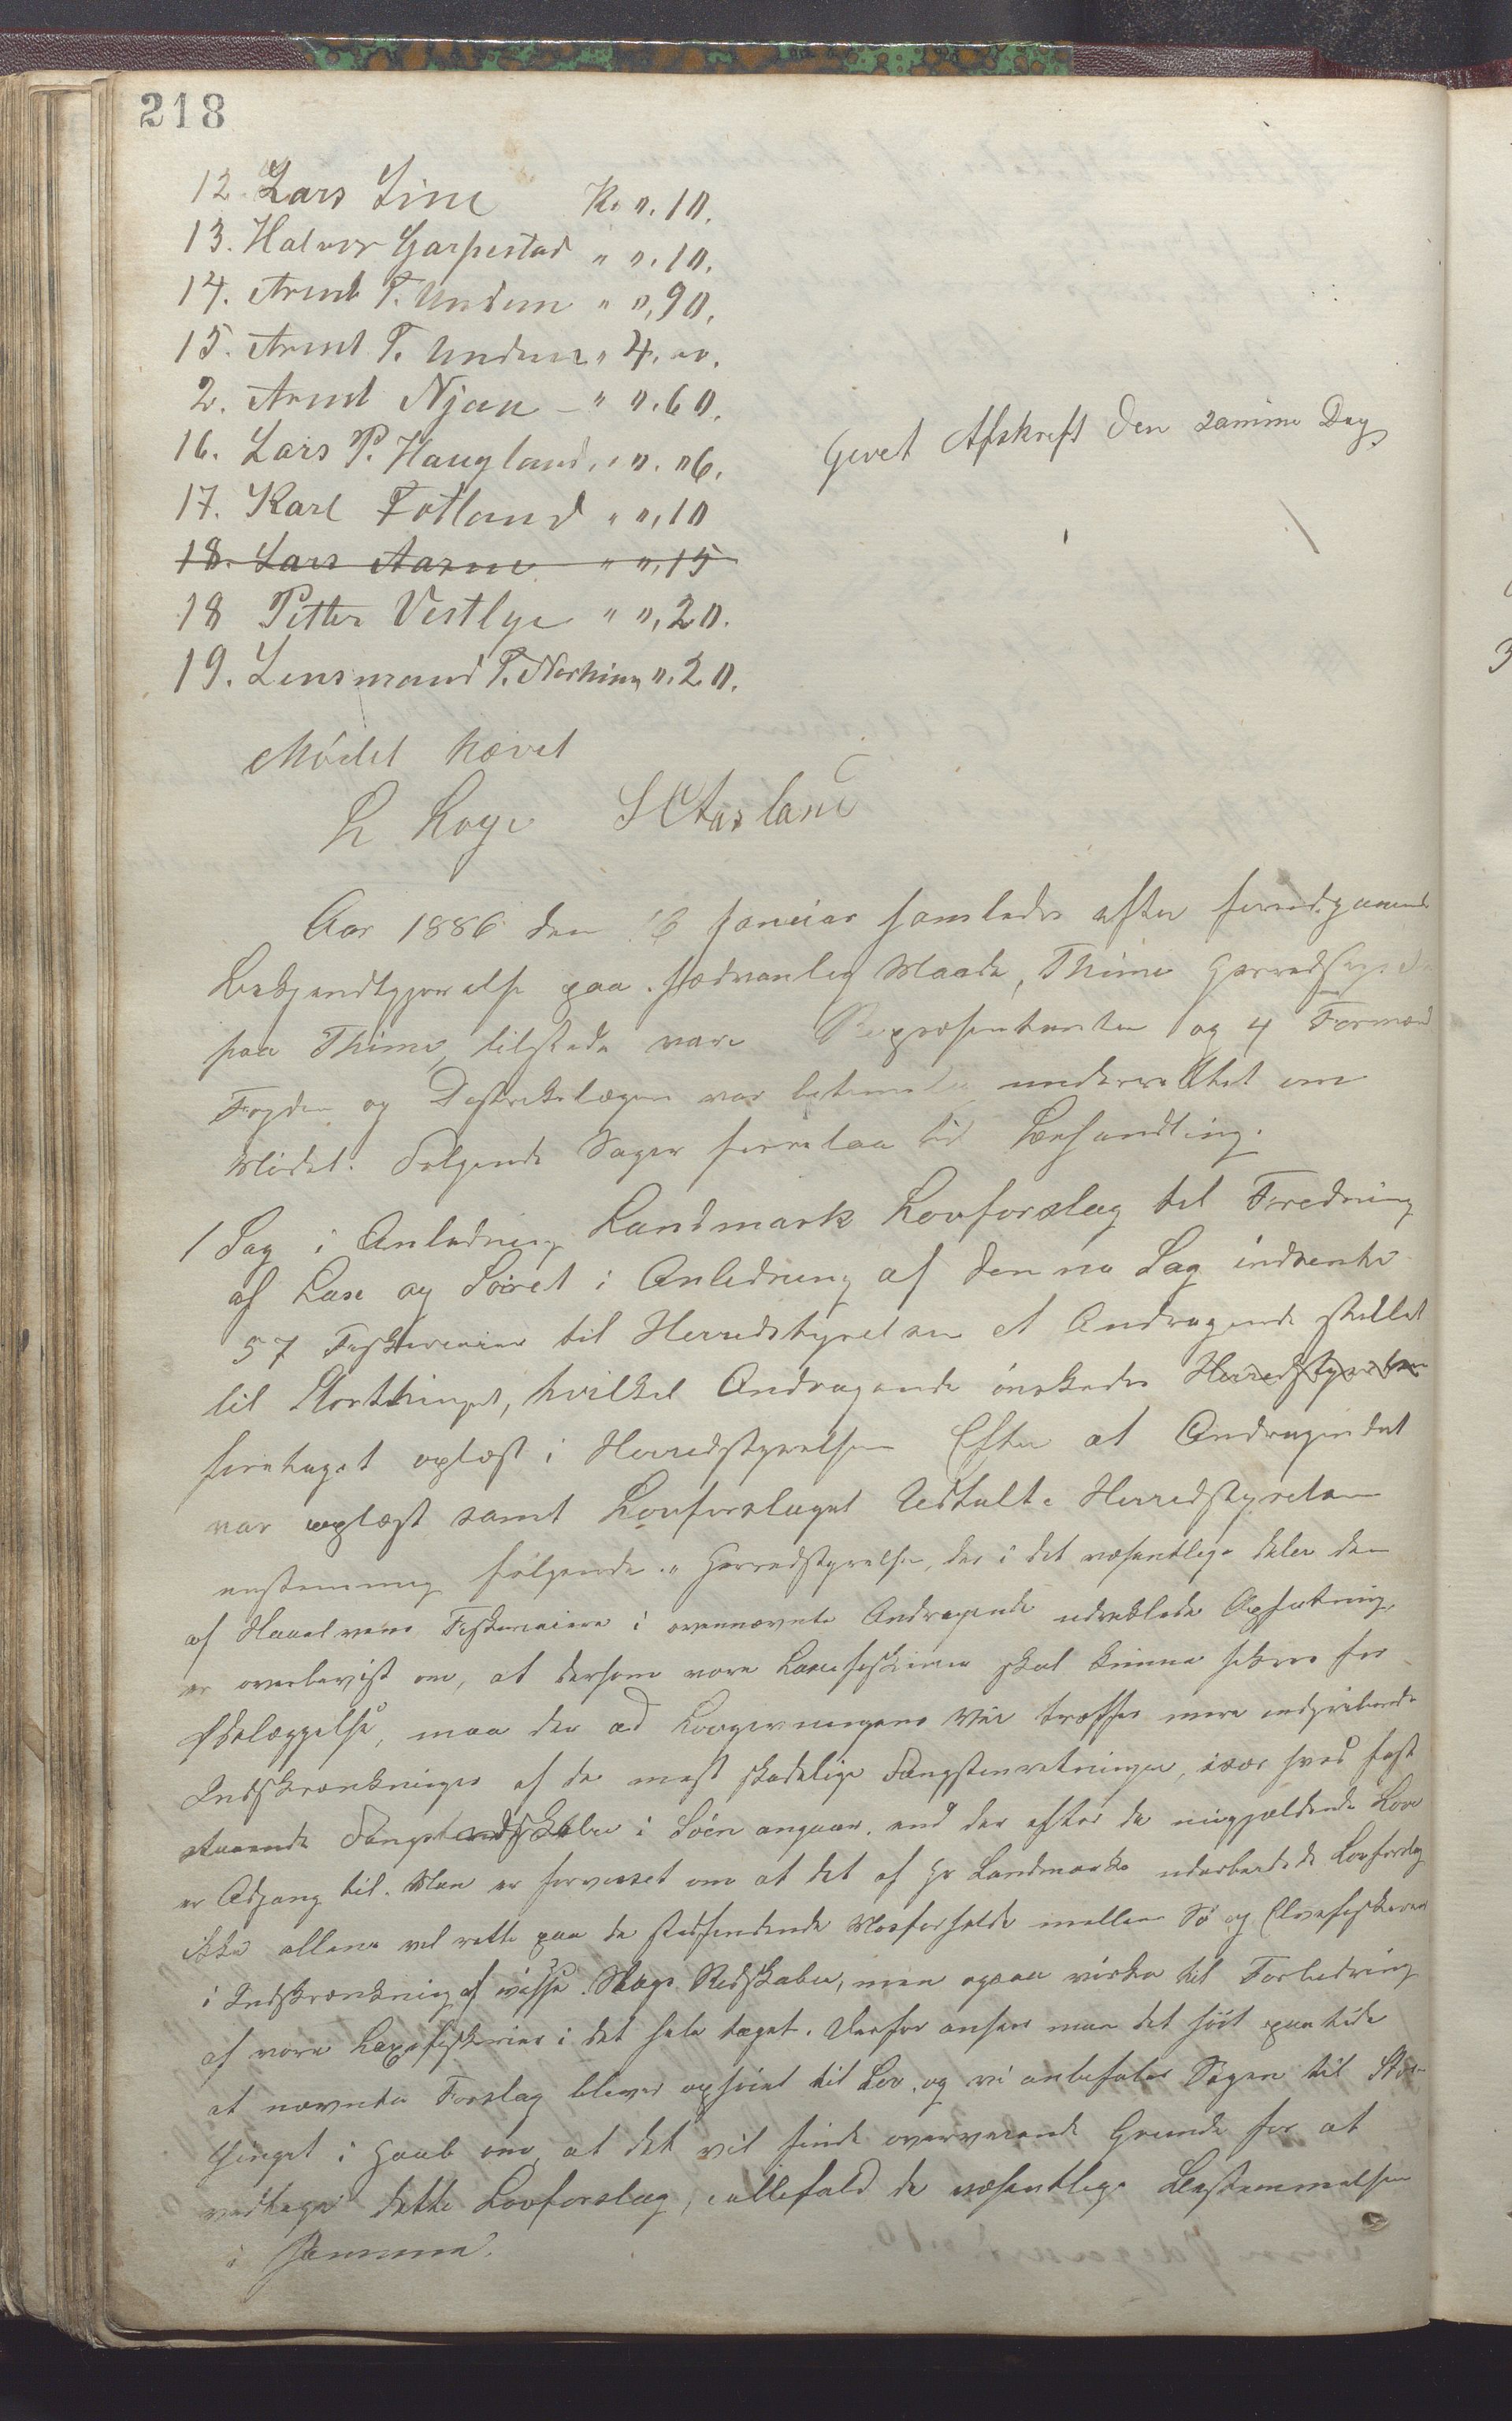 218
12. Lars Line K. ". 10.
13. Halvor Garpestad " ". 10.
14. Arent T. Undem " ", 90.
15. Arent T. Undem " 4. 00.
2. Arent Njaa — " ". 60.
16. Lars P. Haugland, " ". "6.
17. Karl Fotland " ", 10
Givet Afskreft den samme Dag
18. Lars Aarre " ", 15
18 Petter Vestlye " ", 20.
19. Lensmand T. Nerheim ". 20.
Mødet hævet
L Loge S Aasland
Aar 1886 den 16 Januar samledes efter forudgaaende
Bekjendtgjørelse paa sædvanlig Maade, Thime Herredstyrelse
paa Thime, tilstede vare Repræsentanter og 4 Formænd
Fogden og Destriktslægen var betimelig underrettet om
Mødet. Følgende Sager forelaa til Behandling.
1 Sag i Anledning Landmark Lovforslag til Fredning
af Lax og Søøret i Anledning af denne Sag indsendte
57 Fiskereiere til Herredstyrelsen et Andragende stillet
til Storthinget, hvilket Andragende ønskedes Herredstyrelsen
foretaget oplæst i Herredstyrelsen Efter at Andragendet
var oplæst samt Lovforslaget Udtalte Herredstyrelsen
enstemmig følgende. " Herredstyrelsen, der i det væsentlige deler den
af Haaelvens Fiskereiere i ovennævnte Andragende udviklede Opfatning,
er overbevist om, at dersom vore Laxefiskerier skal kunne sikres for
Ødelæggelse, maa der ad Lovgivningens Vei træffes mere indgribende
Indskrænkninger af de mest skadelige Fangstindretninger, især hvad fast
staaende Fangstredskaber i Søen angaar, end der efter de nugjældende Love
er Adgang til. Man er forvisset om at det af Hr Landmark udarbeidede Lovforslag
ikke allene vil rette paa de stedfindende Misforholde mellem Sø og Elvefiskerier
i Indskrænkning af visse Slags Redskaber, men ogsaa virke til Forbedring
af vore Laxefiskerier i det hele taget. Derfor anser man det høit paa tide
at nævnte Forslag bliver ophøiet til Lov, og vi anbefaler Sagen til Stor-
thinget i Haab om, at det vil finde overveiende Grunde for at
vedtage dette Lovforslag, iallefald de væsentlige Bestemmelser
i samme.